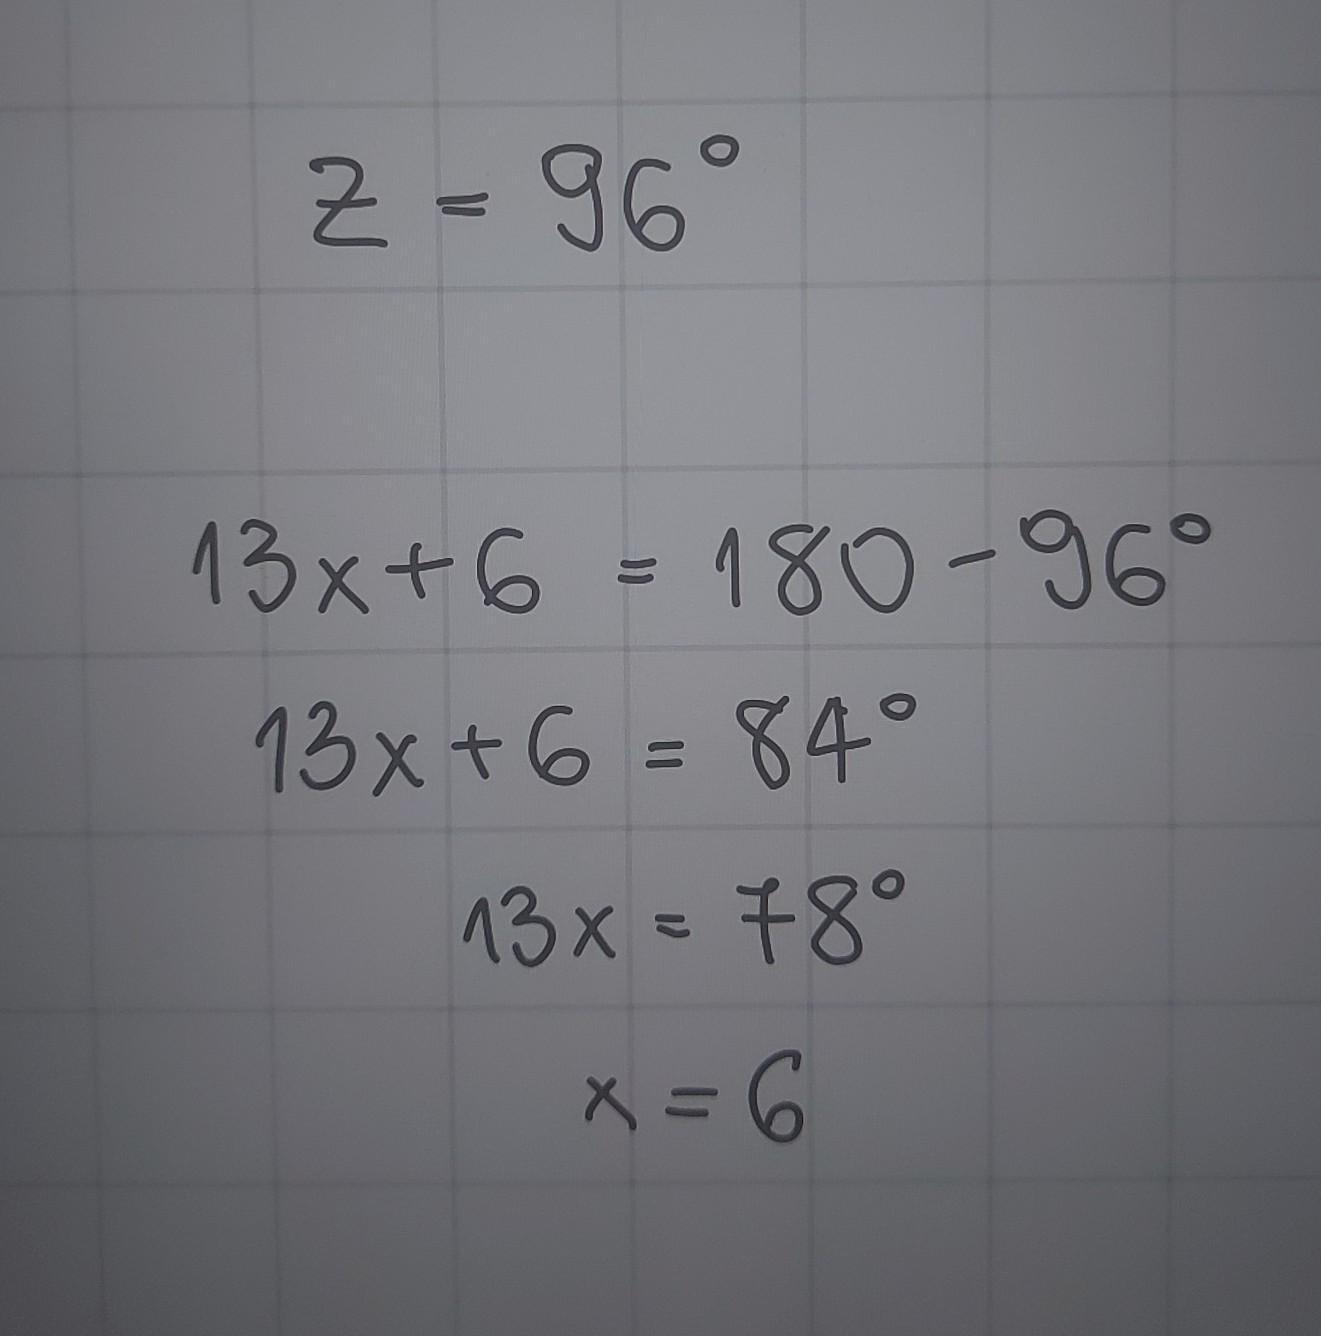 z = 96°
13x + 6 = 180 - 96°
13x + 6 = 84°
13x = 78°
x = 6